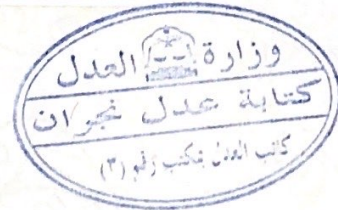 وزارة العدل
كتابة عدل نجران
كاتب العدل بمكتب رقم (٣)